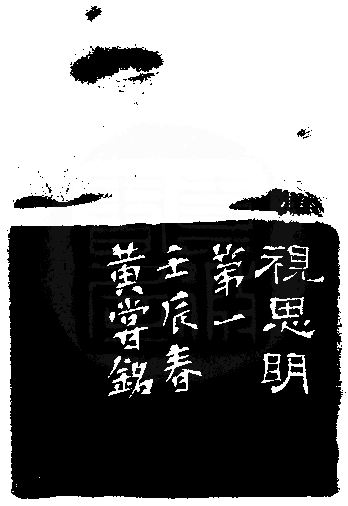 視思明
第一
壬辰春
黃嘗銘